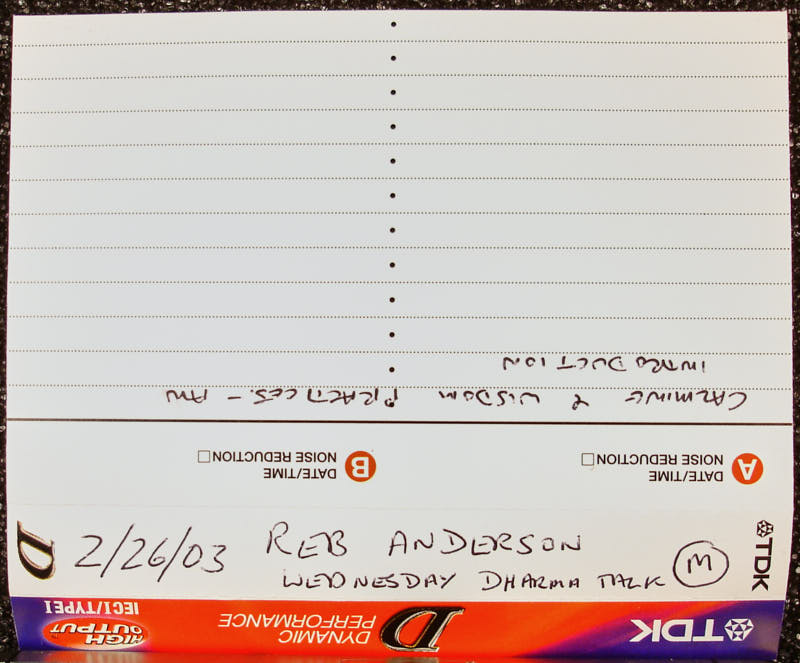 CALMING & WISDOM PRACTICES. - AN
INTRODUCTION
A DATE/TIME
NOISE REDUCTION
B DATE/TIME
NOISE REDUCTION
TDK
D 2/26/03 REB ANDERSON
WEDNESDAY DHARMA TALK M
TDK D DYNAMIC
PERFORMANCE
HIGH
OUTPUT
IECI/TYPE I